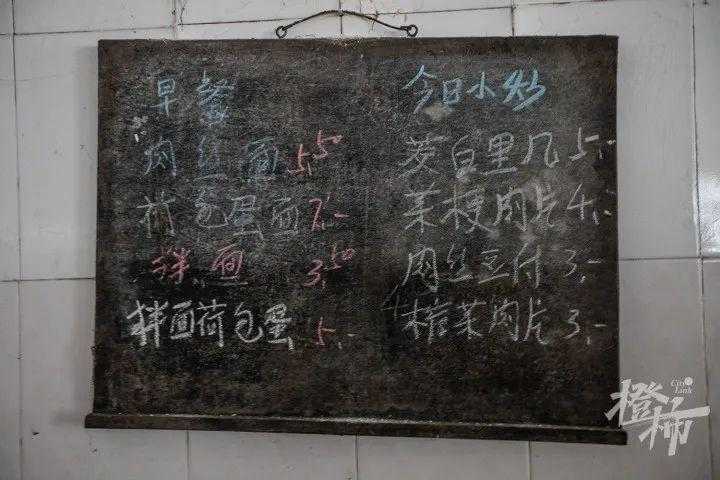 早餐
肉丝面 5.50
荷包蛋面 7.-
拌面 3.50
拌面荷包蛋 5.-
今日小炒
茭白里几 5.-
菜梗肉片 4.-
肉丝豆付 3.-
榨菜肉片 3.-
City Link
橙柿